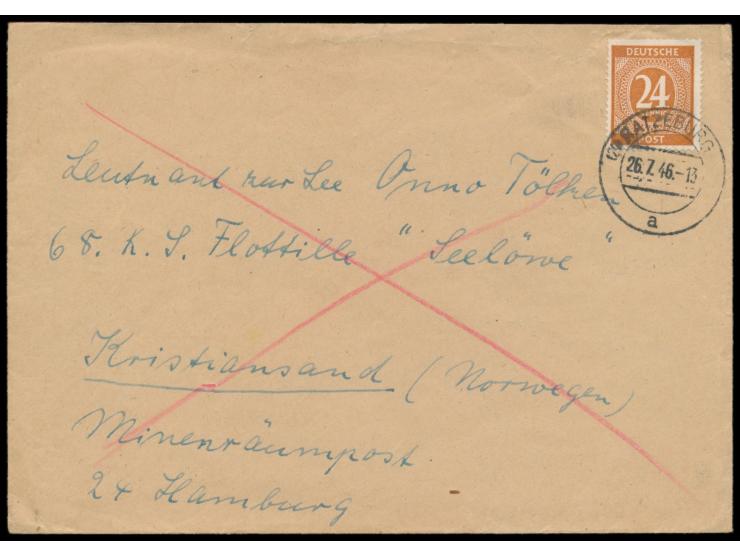 DEUTSCHE
24
PFENNIG
POST
RATZEBURG
26.7.46.-13
a
Leutnant zur See Onno Tölken
68. K. S. Flottille "Seelöwe"
Kristiansand (Norwegen)
Minenräumpost
24 Hamburg